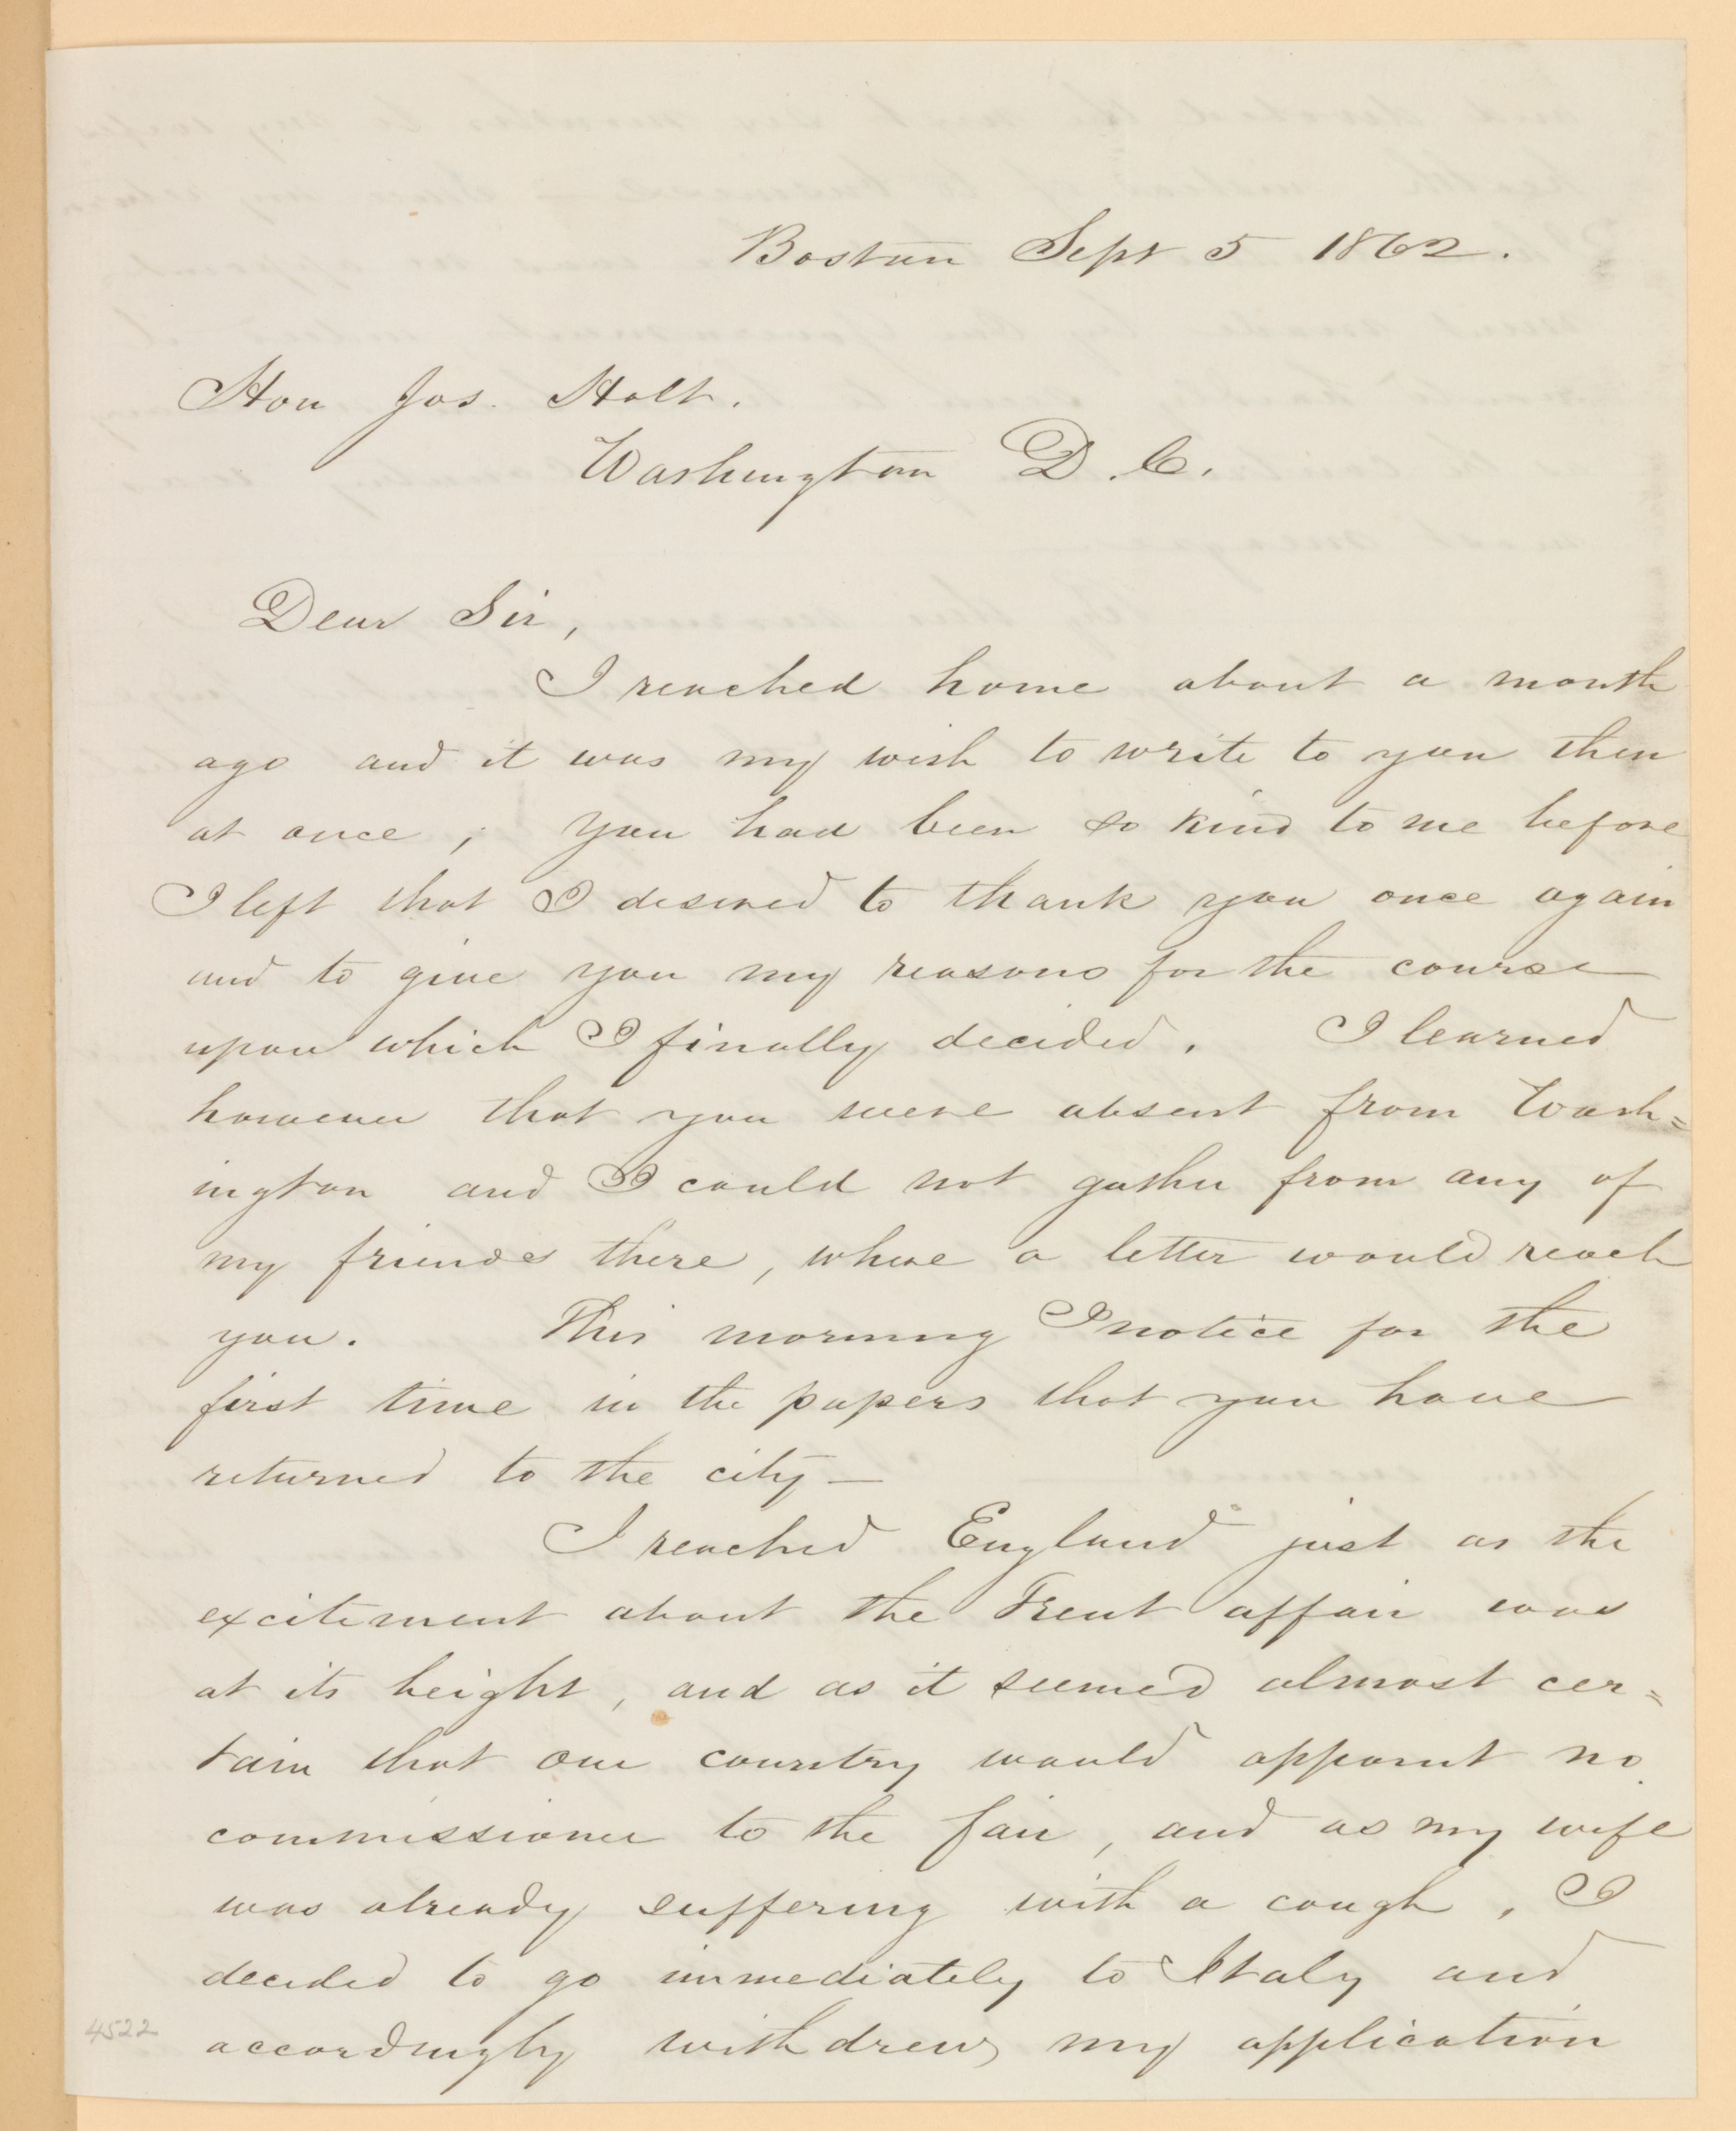 Boston Sept 5 1862.
Hon Jos. Holt.
Washington D.C.
Dear Sir,
I reached home about a month
ago and it was my wish to write to you then
at once; you had been so kind to me before
I left that I desired to thank you once again
and to give you my reasons for the course
upon which I finally decided. I learned
however that you were absent from Wash=
ington and I could not gather from any of
my friends there, where a letter would reach
you. This morning I notice for the
first time in the papers that you have
returned to the city—
I reached England just as the
excitement about the Trent affair was
at its height, and as it seemed almost cer=
tain that our country would appoint no
commissioner to the fair, and as my wife
was already suffering with a cough, I
decided to go immediately to Italy and
accordingly withdrew my application
4522